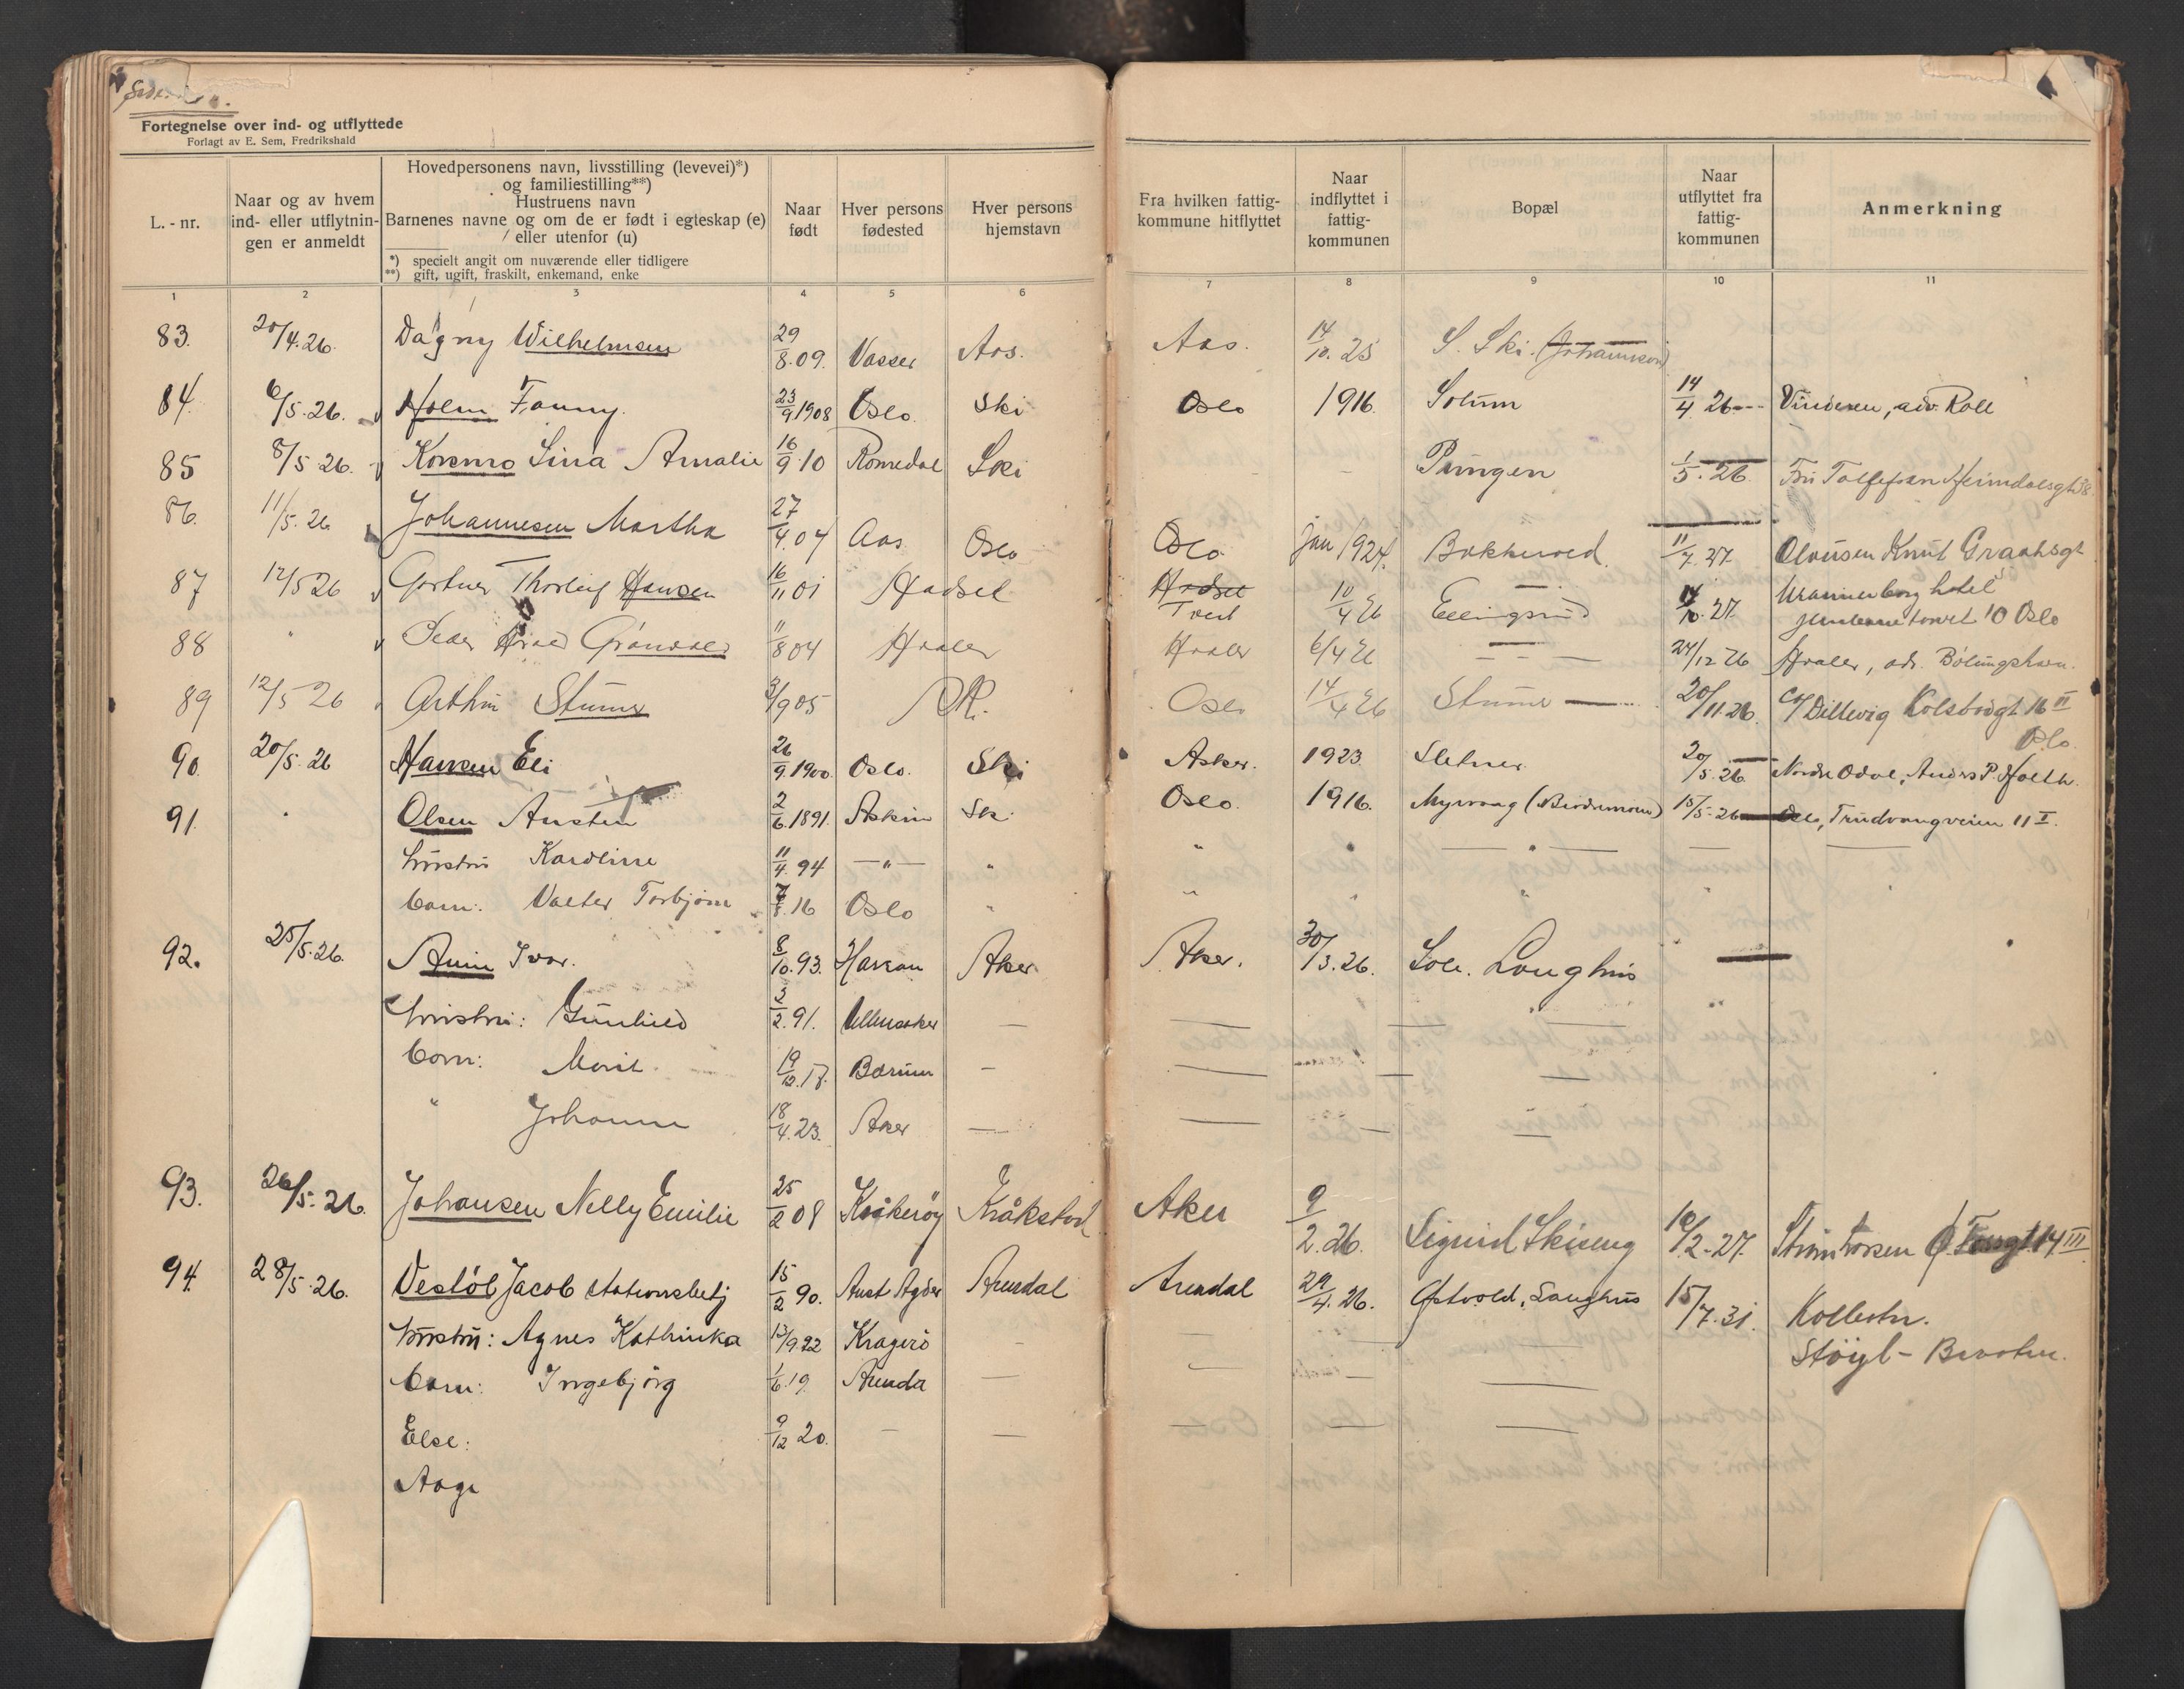 Fortegnelse over ind- og utflyttede
Forlagt av E. Sem, Fredrikshald
L. - nr.
Naar og av hvem ind- eller utflytnin-gen er anmeldt
Hovedpersonens navn, livsstilling (levevei)*)
og familiestilling**)
Hustruens navn
Barnenes navne og om de er født i egteskap (e)
eller utenfor (u)
*) specielt angit om nuværende eller tidligere
**) gift, ugift, fraskilt, enkemand, enke
Naar født
Hver persons fødested
Hver persons hjemstavn
Fra hvilken fattig-kommune hitflyttet
Naar indflyttet i fattig-kommunen
Bopæl
Naar utflyttet fra fattig-kommunen
Anmerkning
1 2 3 4 5 6 7 8 9 10 11
83. 20/4.26. Dagny Wilhelmsen 29/8.09. Vasser Aas. Aas. 14/10.25 S. Ski. (Johannesen)
84. 6/5.26. Holm Fanny. 23/9 1908 Oslo. Ski Oslo 1916. Solum 14/4 26 Vinderen, adv. Roll
85 8/5 26. Korsmo Lina Amalie 16/9 10 Romedal Ski Pungen 1/5.26.
86. 11/5.26 Johannesen Martha 27/4.04 Aas Oslo Oslo Jan 1924. Bakkerud. 11/7.27. Olausen Knut Graahsgt
87 12/5 26 Gartner Thorleif Hansen 16/11 01 Hadsel Hadsel 10/4 26 Ellingsrud 14/10.27. Wrannerborg hotel
Tveit Jernbanetorvet 10 Oslo
88 " Peder Grøndal 11/8 04 Hvaler Hvaler 6/4 26 24/12 26 Hvaler, adr. Bølingshavn.
89 12/5 26 Arthur Sturnes 3/9 05 Ski. Oslo 14/4 26 20/11.26. c/o Dillevig Kolstadgt 16 II
Oslo.
90. 20/5.26 Hansen Eli 26/9.1900. Oslo. Ski Asker. 1923. Sletner 20/5.26. Nordre Odal, Anders P. Holth.
91. " Olsen Austin 2/6.1891. Askim Ski Oslo. 1916. Myrvang 15/5-26 Oslo, Trudvangveien 11 I.
hustru Karoline 11/4.94 — " — "
barn: Valter Torbjørn 7/8.16 Oslo "
92. 25/5.26. Ivar. 8/10.93. Aker Aker. 30/3.26. Sole. Langhus
hustru: Gunhild 3/2.91. Ullensaker —
barn: Marit 19/12.17. Bærum —
" Johanne 18/4.23. Aker —
93. 26/5.26. Johansen Nelly Emilie 25/2 08 Kråkerøy Kråkstad Aker 9/2.26. Sigurd Skiseng 10/2-27.
94. 28/5.26. Vestøl Jacob stationsbetj 15/2 90. Aust Agder Arendal Arendal 29/4.26. Østvold, Langhus 15/7.31. Kolbotn.
hustru: Agnes Kathinka 13/9.22 Kragerø -
Støyl - Brvoten.
barn: Ingebjørg 1/6.19. Arendal —
Else: 9/12 20. — —
Aage